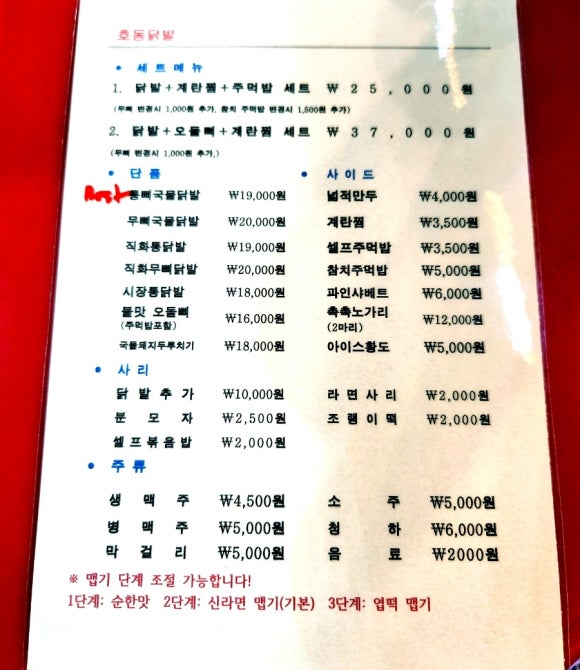 호동닭발
• 세트메뉴
1. 닭발+계란찜+주먹밥 세트 ₩25,000원
(무뼈 변경시 1,000원 추가, 참치 주먹밥 변경시 1,500원 추가)
2. 닭발+오돌뼈+계란찜 세트 ₩37,000원
(무뼈 변경시 1,000원 추가,)
• 단품 • 사이드
Best 통뼈국물닭발 ₩19,000원 넓적만두 ₩4,000원
무뼈국물닭발 ₩20,000원 계란찜 ₩3,500원
직화통닭발 ₩19,000원 셀프주먹밥 ₩3,500원
직화무뼈닭발 ₩20,000원 참치주먹밥 ₩5,000원
시장통닭발 ₩18,000원 파인샤베트 ₩6,000원
불맛 오돌뼈 ₩16,000원 촉촉노가리 ₩12,000원
(주먹밥포함) (2마리)
국물돼지두루치기 ₩18,000원 아이스황도 ₩5,000원
• 사리
닭발추가 ₩10,000원 라면사리 ₩2,000원
분모자 ₩2,500원 조랭이떡 ₩2,000원
셀프볶음밥 ₩2,000원
• 주류
생맥주 ₩4,500원 소주 ₩5,000원
병맥주 ₩5,000원 청하 ₩6,000원
막걸리 ₩5,000원 음료 ₩2000원
※ 맵기 단계 조절 가능합니다!
1단계: 순한맛 2단계: 신라면 맵기(기본) 3단계: 엽떡 맵기